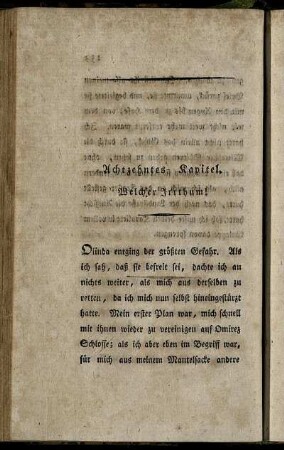 Achtzehntes Kapitel.
Welcher Irrthum!
Olinda entging der größten Gefahr. Als
ich sah, daß sie befreit sei, dachte ich an
nichts weiter, als mich aus derselben zu
retten, da ich mich nun selbst hineingestürzt
hatte. Mein erster Plan war, mich schnell
mit ihnen wieder zu vereinigen auf Omirez
Schlosse; als ich aber eben im Begriff war,
für mich aus meinem Mantelsacke andere